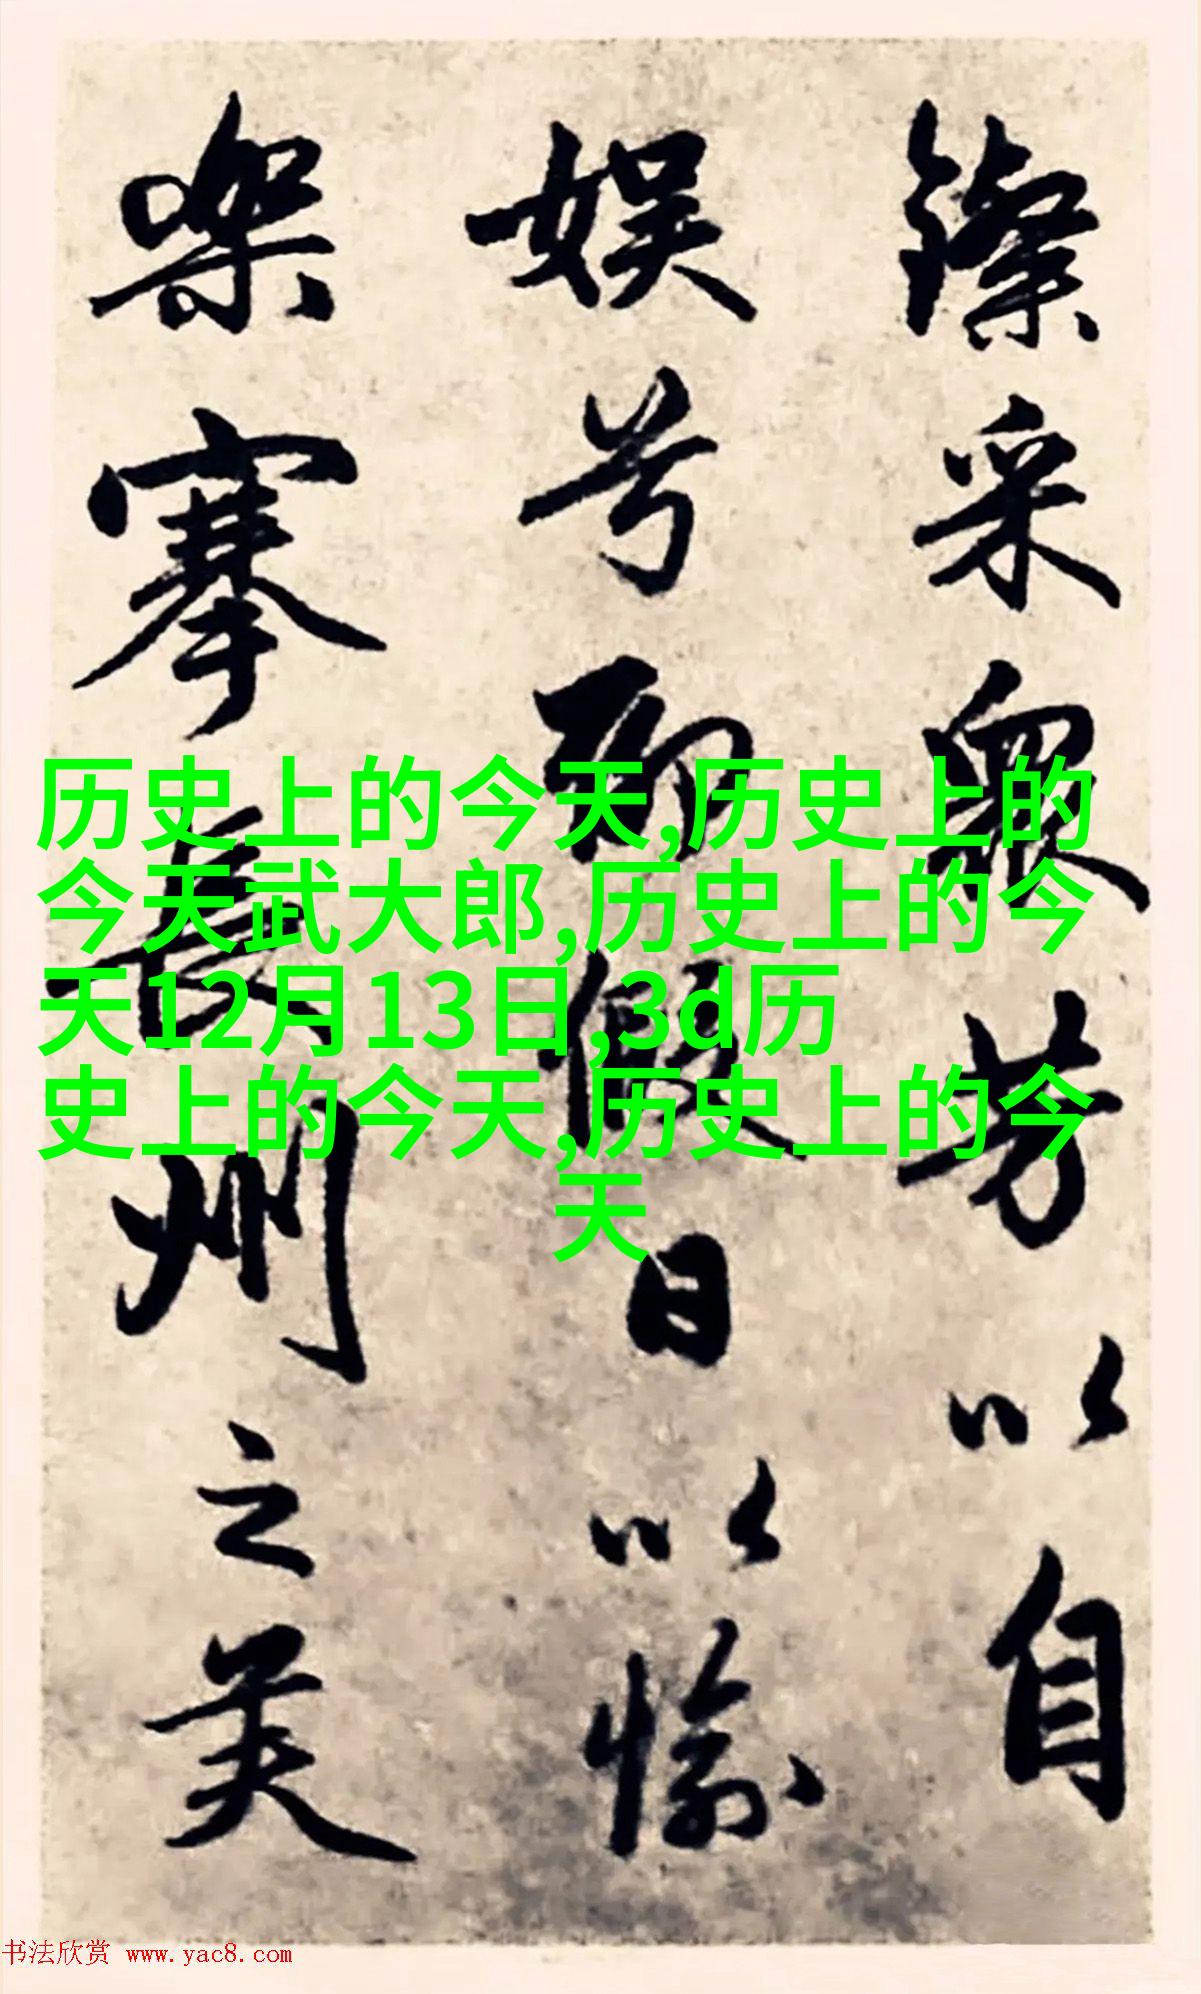 采眾芳以自
娱兮聊假日以愉
樂搴長州之芙
历史上的今天,历史上的
今天武大郎,历史上的今
天12月13日,3d历
史上的今天,历史上的今
天
书法欣赏 www.yac8.com